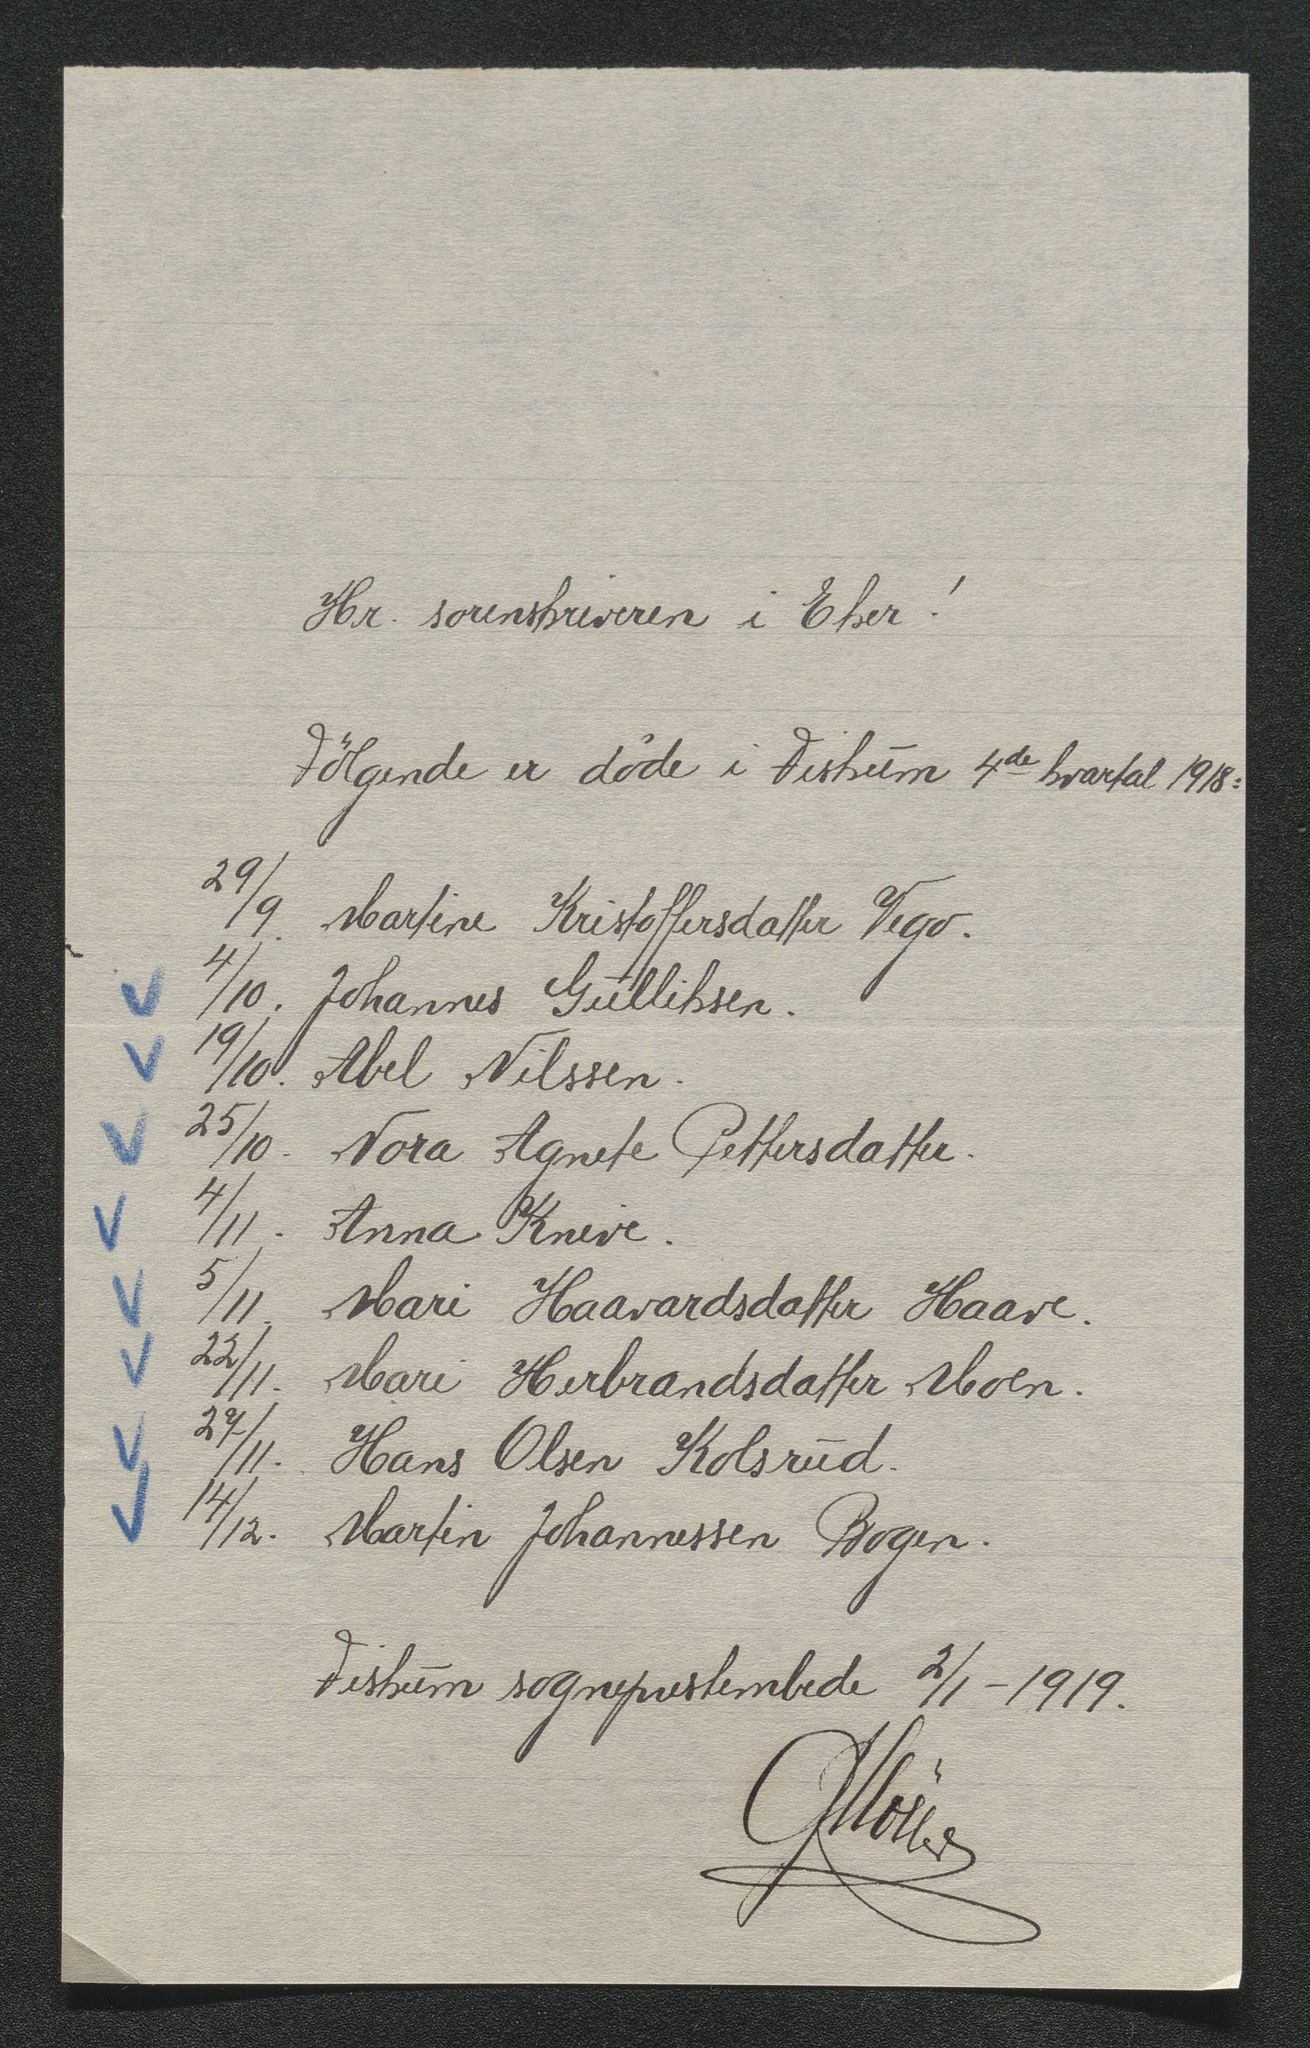 Hr. sorenskriveren i Eker!
Følgende er døde i Fiskum 4de kvartal 1918:
29/9. Martine Kristoffersdatter Vego.
4/10. Johannes Gulliksen.
19/10. Abel Nilssen.
25/10. Nora Agnete Pettersdatter.
4/11. Anna Knive.
5/11. Mari Haavardsdatter Haave.
22/11. Mari Herbrandsdatter Moen.
27/11. Hans Olsen Kolsrud.
14/12. Martin Johannessen Bogen.
Fiskum sogneprestembede 2/1-1919.